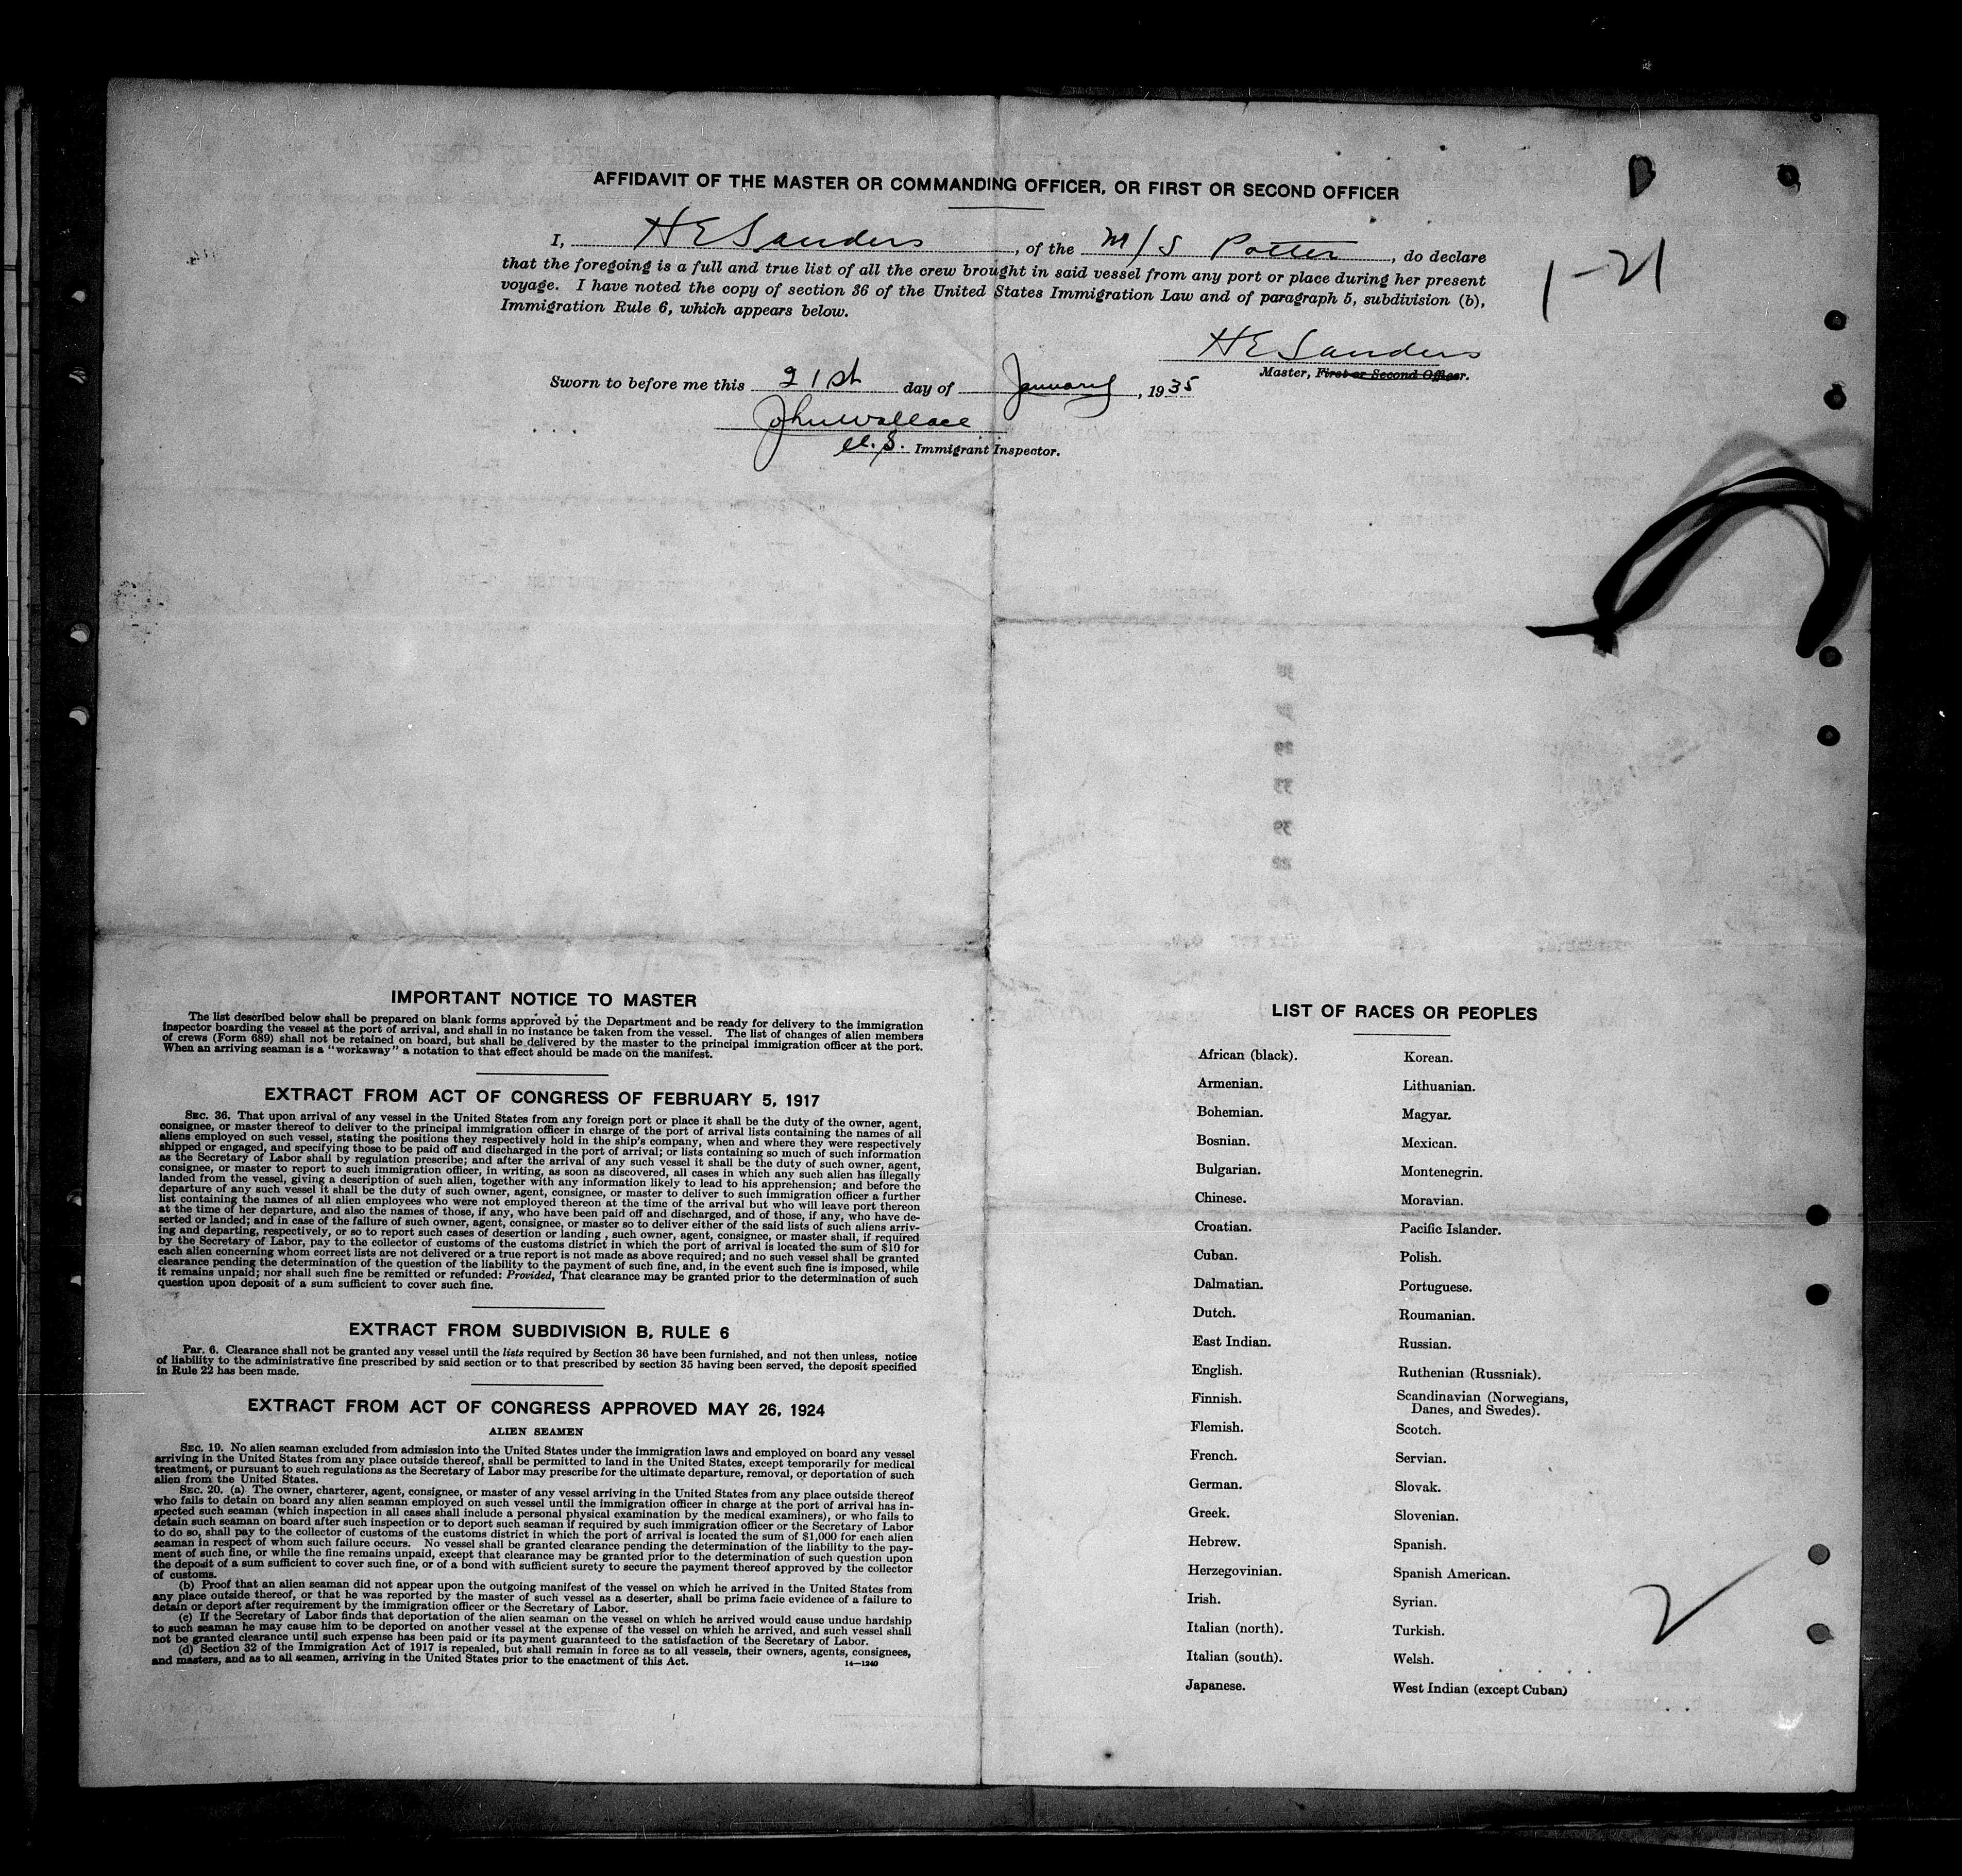 AFFIDAVIT OF THE MASTER OR COMMANDING OFFICER, OR FIRST OR SECOND OFFICER
I, H E Sanders, of the M/S Potter, do declare
that the foregoing is a full and true list of all the crew brought in said vessel from any port or place during her present
voyage. I have noted the copy of section 36 of the United States Immigration Law and of paragraph 5, subdivision (b),
Immigration Rule 6, which appears below.
1-21
H E Sanders
Master, First or Second Officer.
Sworn to before me this 21st day of January, 1935
John Wallace
U.S. Immigrant Inspector.
IMPORTANT NOTICE TO MASTER
The list described below shall be prepared on blank forms approved by the Department and be ready for delivery to the immigration
inspector boarding the vessel at the port of arrival, and shall in no instance be taken from the vessel. The list of changes of alien members
of crews (Form 689) shall not be retained on board, but shall be delivered by the master to the principal immigration officer at the port.
When an arriving seaman is a "workaway" a notation to that effect should be made on the manifest.
EXTRACT FROM ACT OF CONGRESS OF FEBRUARY 5, 1917
SEC. 36. That upon arrival of any vessel in the United States from any foreign port or place it shall be the duty of the owner, agent,
consignee, or master thereof to deliver to the principal immigration officer in charge of the port of arrival lists containing the names of all
aliens employed on such vessel, stating the positions they respectively hold in the ship's company, when and where they were respectively
shipped or engaged, and specifying those to be paid off and discharged in the port of arrival; or lists containing so much of such information
as the Secretary of Labor shall by regulation prescribe; and after the arrival of any such vessel it shall be the duty of such owner, agent,
consignee, or master to report to such immigration officer, in writing, as soon as discovered, all cases in which any such alien has illegally
landed from the vessel, giving a description of such alien, together with any information likely to lead to his apprehension; and before the
departure of any such vessel it shall be the duty of such owner, agent, consignee, or master to deliver to such immigration officer a further
list containing the names of all alien employees who were not employed thereon at the time of the arrival but who will leave port thereon
at the time of her departure, and also the names of those, if any, who have been paid off and discharged, and of those, if any, who have de-
serted or landed; and in case of the failure of such owner, agent, consignee, or master so to deliver either of the said lists of such aliens arriv-
ing and departing, respectively, or so to report such cases of desertion or landing , such owner, agent, consignee, or master shall, if required
by the Secretary of Labor, pay to the collector of customs of the customs district in which the port of arrival is located the sum of $10 for
each alien concerning whom correct lists are not delivered or a true report is not made as above required; and no such vessel shall be granted
clearance pending the determination of the question of the liability to the payment of such fine, and, in the event such fine is imposed, while
it remains unpaid; nor shall such fine be remitted or refunded: Provided, That clearance may be granted prior to the determination of such
question upon deposit of a sum sufficient to cover such fine.
EXTRACT FROM SUBDIVISION B, RULE 6
Par. 6. Clearance shall not be granted any vessel until the lists required by Section 36 have been furnished, and not then unless, notice
of liability to the administrative fine prescribed by said section or to that prescribed by section 35 having been served, the deposit specified
in Rule 22 has been made.
EXTRACT FROM ACT OF CONGRESS APPROVED MAY 26, 1924
ALIEN SEAMEN
SEC. 19. No alien seaman excluded from admission into the United States under the immigration laws and employed on board any vessel
arriving in the United States from any place outside thereof, shall be permitted to land in the United States, except temporarily for medical
treatment, or pursuant to such regulations as the Secretary of Labor may prescribe for the ultimate departure, removal, or deportation of such
alien from the United States.
SEC. 20. (a) The owner, charterer, agent, consignee, or master of any vessel arriving in the United States from any place outside thereof
who fails to detain on board any alien seaman employed on such vessel until the immigration officer in charge at the port of arrival has in-
spected such seaman (which inspection in all cases shall include a personal physical examination by the medical examiners), or who fails to
detain such seaman on board after such inspection or to deport such seaman if required by such immigration officer or the Secretary of Labor
to do so, shall pay to the collector of customs of the customs district in which the port of arrival is located the sum of $1,000 for each alien
seaman in respect of whom such failure occurs. No vessel shall be granted clearance pending the determination of the liability to the pay-
ment of such fine, or while the fine remains unpaid, except that clearance may be granted prior to the determination of such question upon
the deposit of a sum sufficient to cover such fine, or of a bond with sufficient surety to secure the payment thereof approved by the collector
of customs.
(b) Proof that an alien seaman did not appear upon the outgoing manifest of the vessel on which he arrived in the United States from
any place outside thereof, or that he was reported by the master of such vessel as a deserter, shall be prima facie evidence of a failure to
detain or deport after requirement by the immigration officer or the Secretary of Labor.
(c) If the Secretary of Labor finds that deportation of the alien seaman on the vessel on which he arrived would cause undue hardship
to such seaman he may cause him to be deported on another vessel at the expense of the vessel on which he arrived, and such vessel shall
not be granted clearance until such expense has been paid or its payment guaranteed to the satisfaction of the Secretary of Labor.
(d) Section 32 of the Immigration Act of 1917 is repealed, but shall remain in force as to all vessels, their owners, agents, consignees,
and masters, and as to all seamen, arriving in the United States prior to the enactment of this Act.
14—1240
LIST OF RACES OR PEOPLES
African (black).
Armenian.
Bohemian.
Bosnian.
Bulgarian.
Chinese.
Croatian.
Cuban.
Dalmatian.
Dutch.
East Indian.
English.
Finnish.
Flemish.
French.
German.
Greek.
Hebrew.
Herzegovinian.
Irish.
Italian (north).
Italian (south).
Japanese.
Korean.
Lithuanian.
Magyar.
Mexican.
Montenegrin.
Moravian.
Pacific Islander.
Polish.
Portuguese.
Roumanian.
Russian.
Ruthenian (Russniak).
Scandinavian (Norwegians,
Danes, and Swedes).
Scotch.
Servian.
Slovak.
Slovenian.
Spanish.
Spanish American.
Syrian.
Turkish.
Welsh.
West Indian (except Cuban)
2